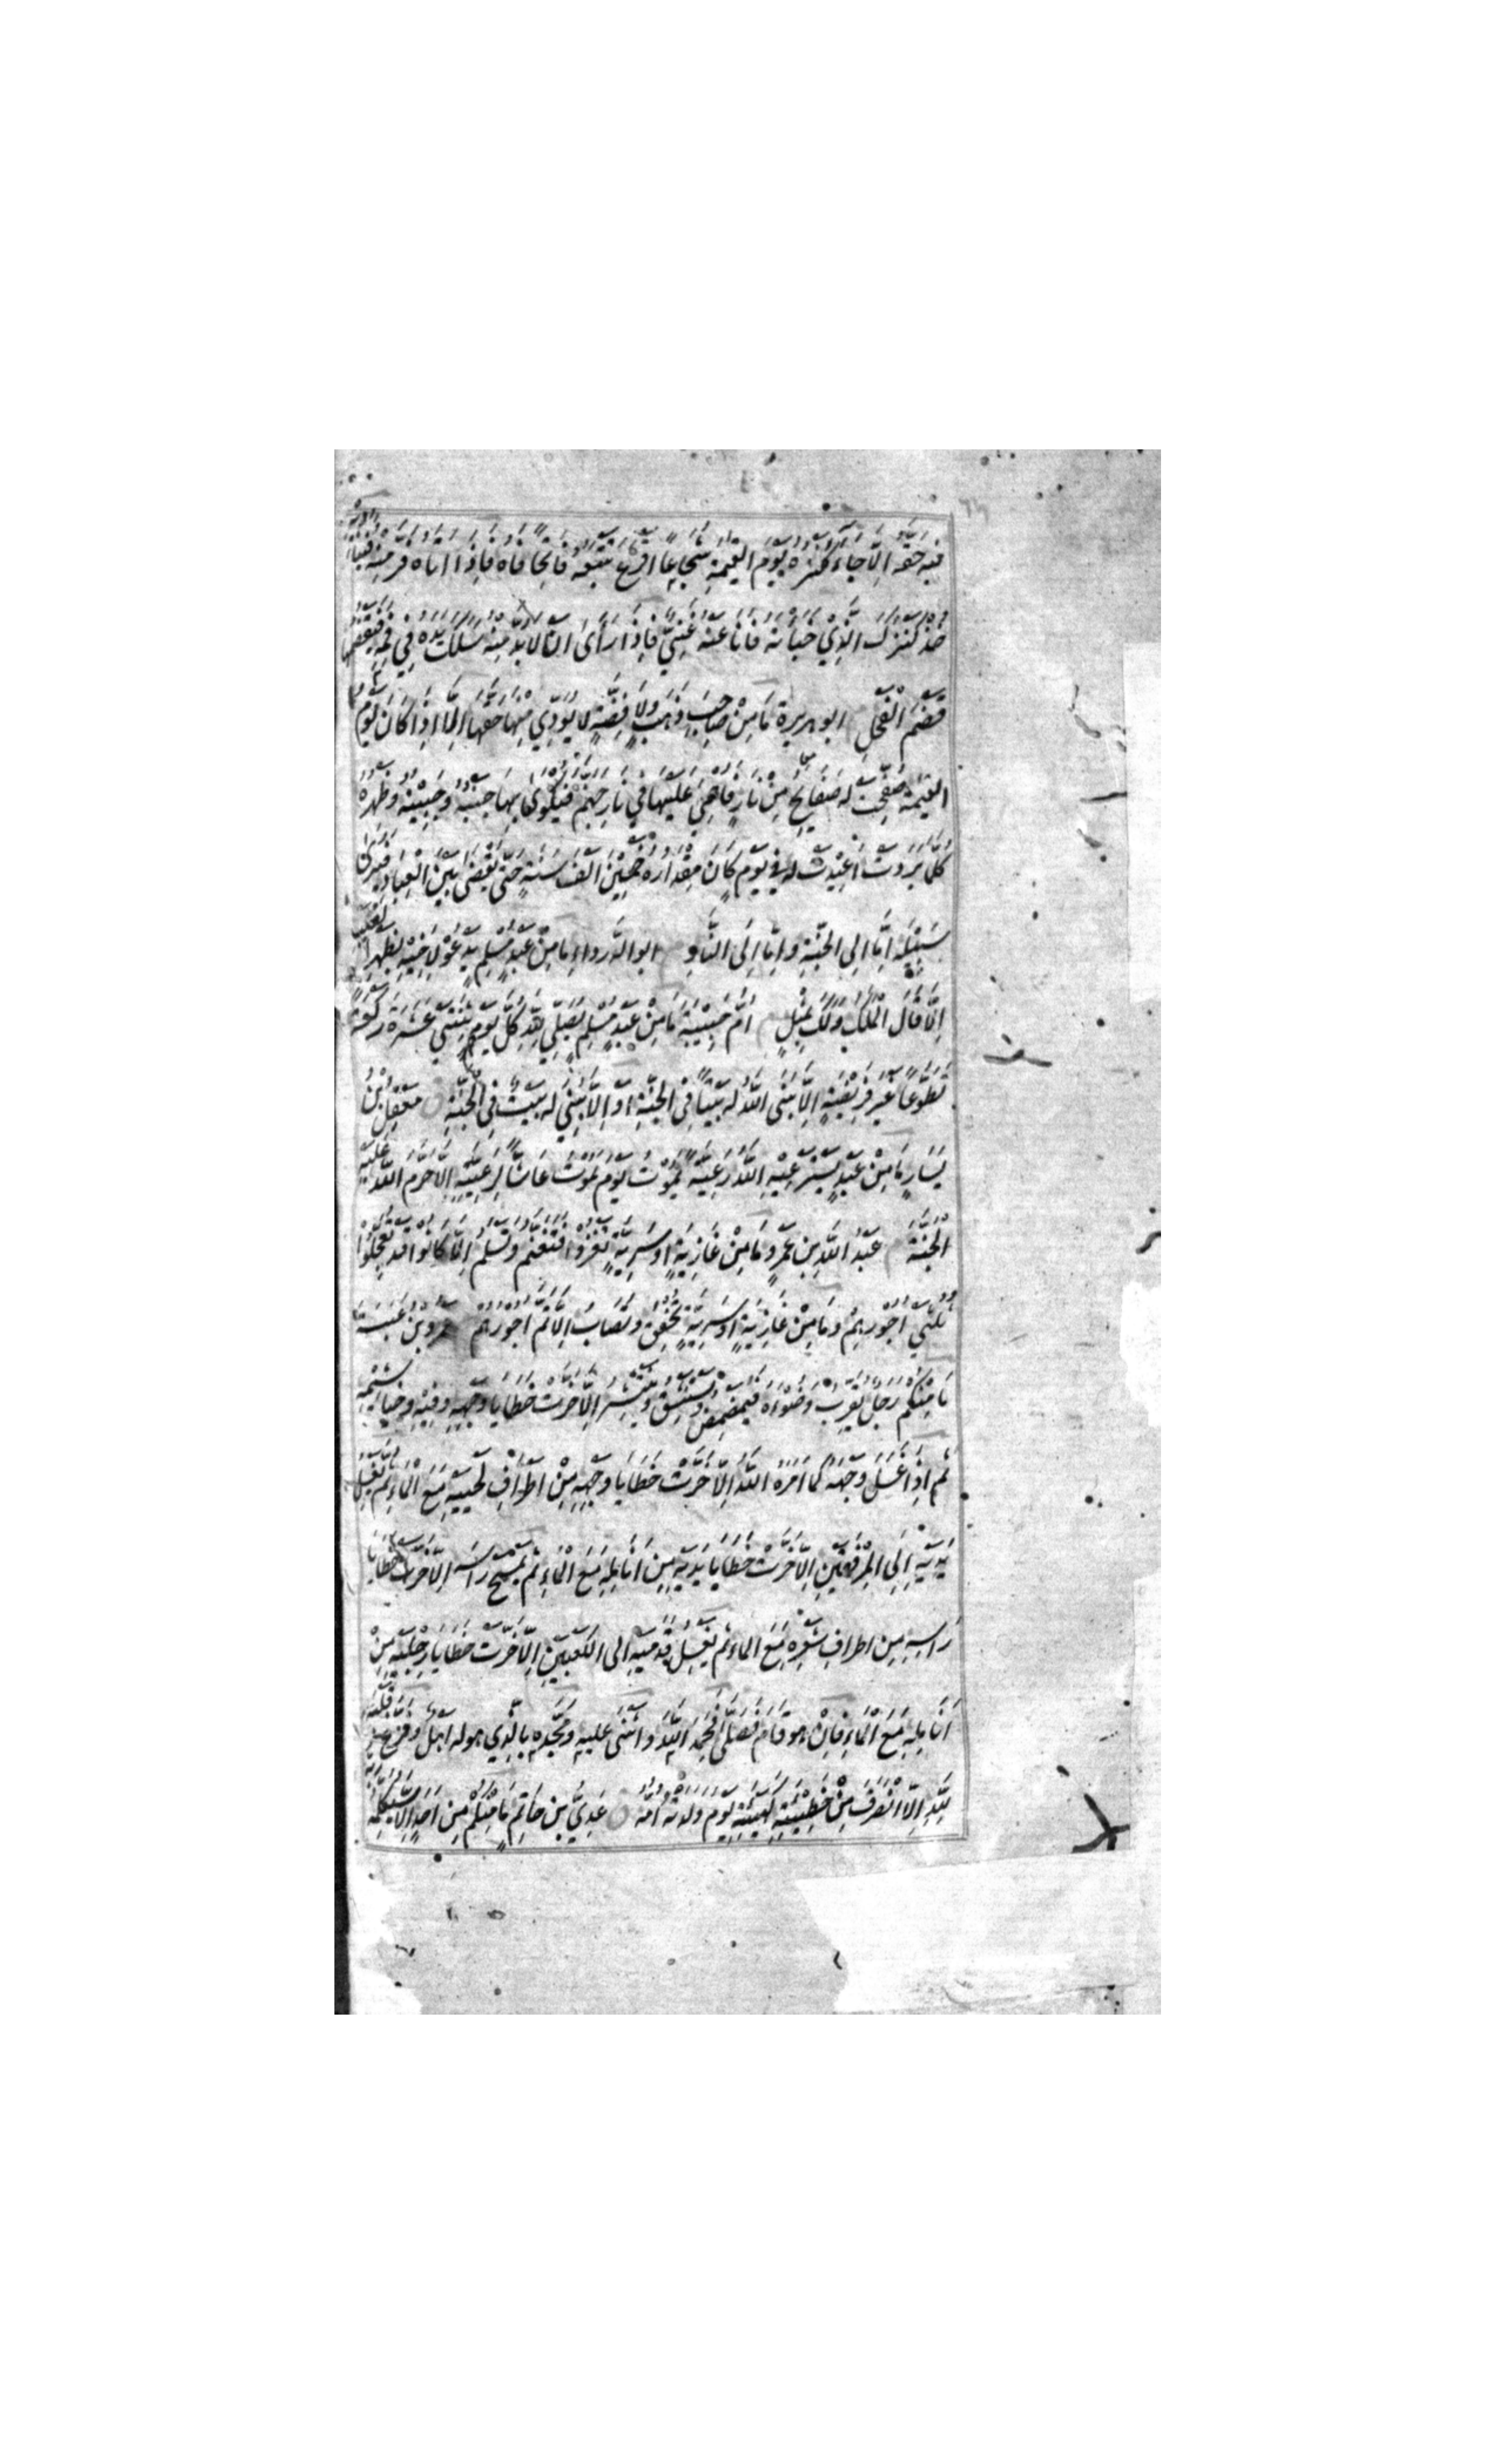 فيه حقه الا جاء كنزه يوم القيمة شجاعا اقرع يتبعه فاتحا فاه فاذا اتاه فر منه فيناديه
خذ كنزك الذي خبأته فانا عنه غني فاذا رأى ان لا بد منه سلك يده في فمه فيقضمها
قضم الفحل ابو هريرة ما من صاحب ذهب ولا فضة لا يؤدي منها حقها الا اذا كان يوم
القيمة صفحت له صفايح من نار فاحمي عليها في نار جهنم فيكوى بها جنبه وجبينه وظهره
كلما بردت اعيدت له في يوم كان مقداره خمسين الف سنة حتى يقضى بين العباد فيرى
سبيله اما الى الجنة واما الى النار ابو الدرداء ما من عبد مسلم يدعو لاخيه بظهر الغيب
الا قال الملك ولك بمثل ام حبيبة ما من عبد مسلم يصلي لله كل يوم ثنتي عشرة ركعة
تطوعا غير فريضة الا بنى الله له بيتا في الجنة او الا بني له بيت في الجنة معقل بن
يسار ما من عبد يسترعيه الله رعية يموت يوم يموت غاشا لرعيته الا حرم الله عليه
الجنة عبد الله بن عمرو ما من غازية او سرية تغزوا فتغنم وتسلم الا كانوا قد تعجلوا
ثلثي اجورهم وما من غازية او سرية تخفق وتصاب الا تم اجورهم عمرو بن عبسة
ما منكم رجل يقرب وضوءه فيمضمض ويستنشق وينتثر الا خرت خطايا وجهه وفيه وخياشيمه
ثم اذا غسل وجهه كما امره الله الا خرت خطايا وجهه من اطراف لحيته مع الماء ثم يغسل
يديه الى المرفقين الا خرت خطايا يديه من انامله مع الماء ثم يمسح رأسه الا خرت خطايا
رأسه من اطراف شعره مع الماء ثم يغسل قدميه الى الكعبين الا خرت خطايا رجليه من
انامله مع الماء فان هو قام فصلى فحمد الله واثنى عليه ومجده بالذي هو له اهل وفرغ قلبه
لله الا انصرف من خطيئته كهيئته يوم ولدته امه عدي بن حاتم ما منكم من احد الا سيكلمه